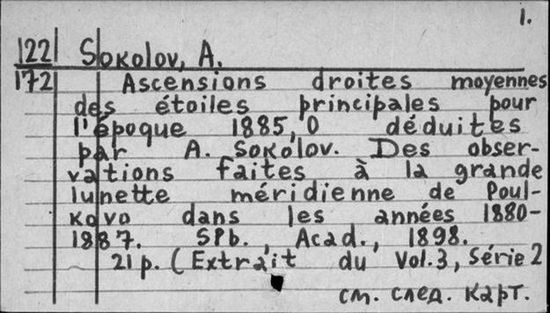 1.
122 Sokolov, A.
172 Ascensions droites moyennes
des étoiles principales pour
l'époque 1885,0 déduites
par A. Sokolov. Des obser-
vations faites à la grande
lunette méridienne de Poul-
kovo dans les années 1880-
1887. SPb., Acad., 1898.
21 p. (Extrait du Vol. 3, Série 2
см. след. карт.